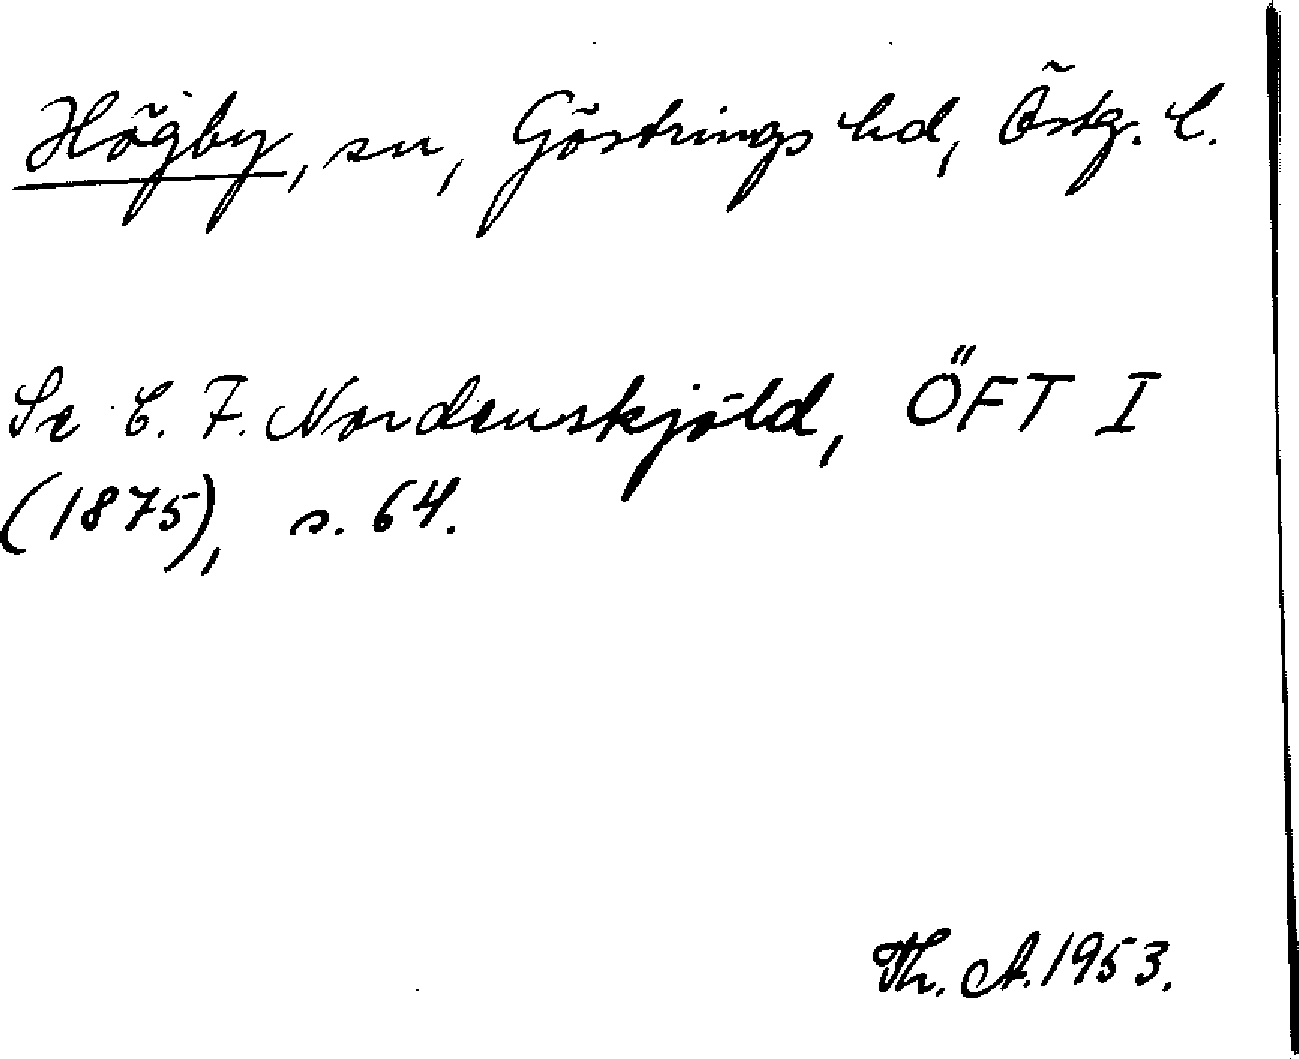 Högby, sn, Göstrings hd, Östg. l.
Se C. F. Nordenskjöld, ÖFT I
(1875), s. 64.
Th. A. 1953.